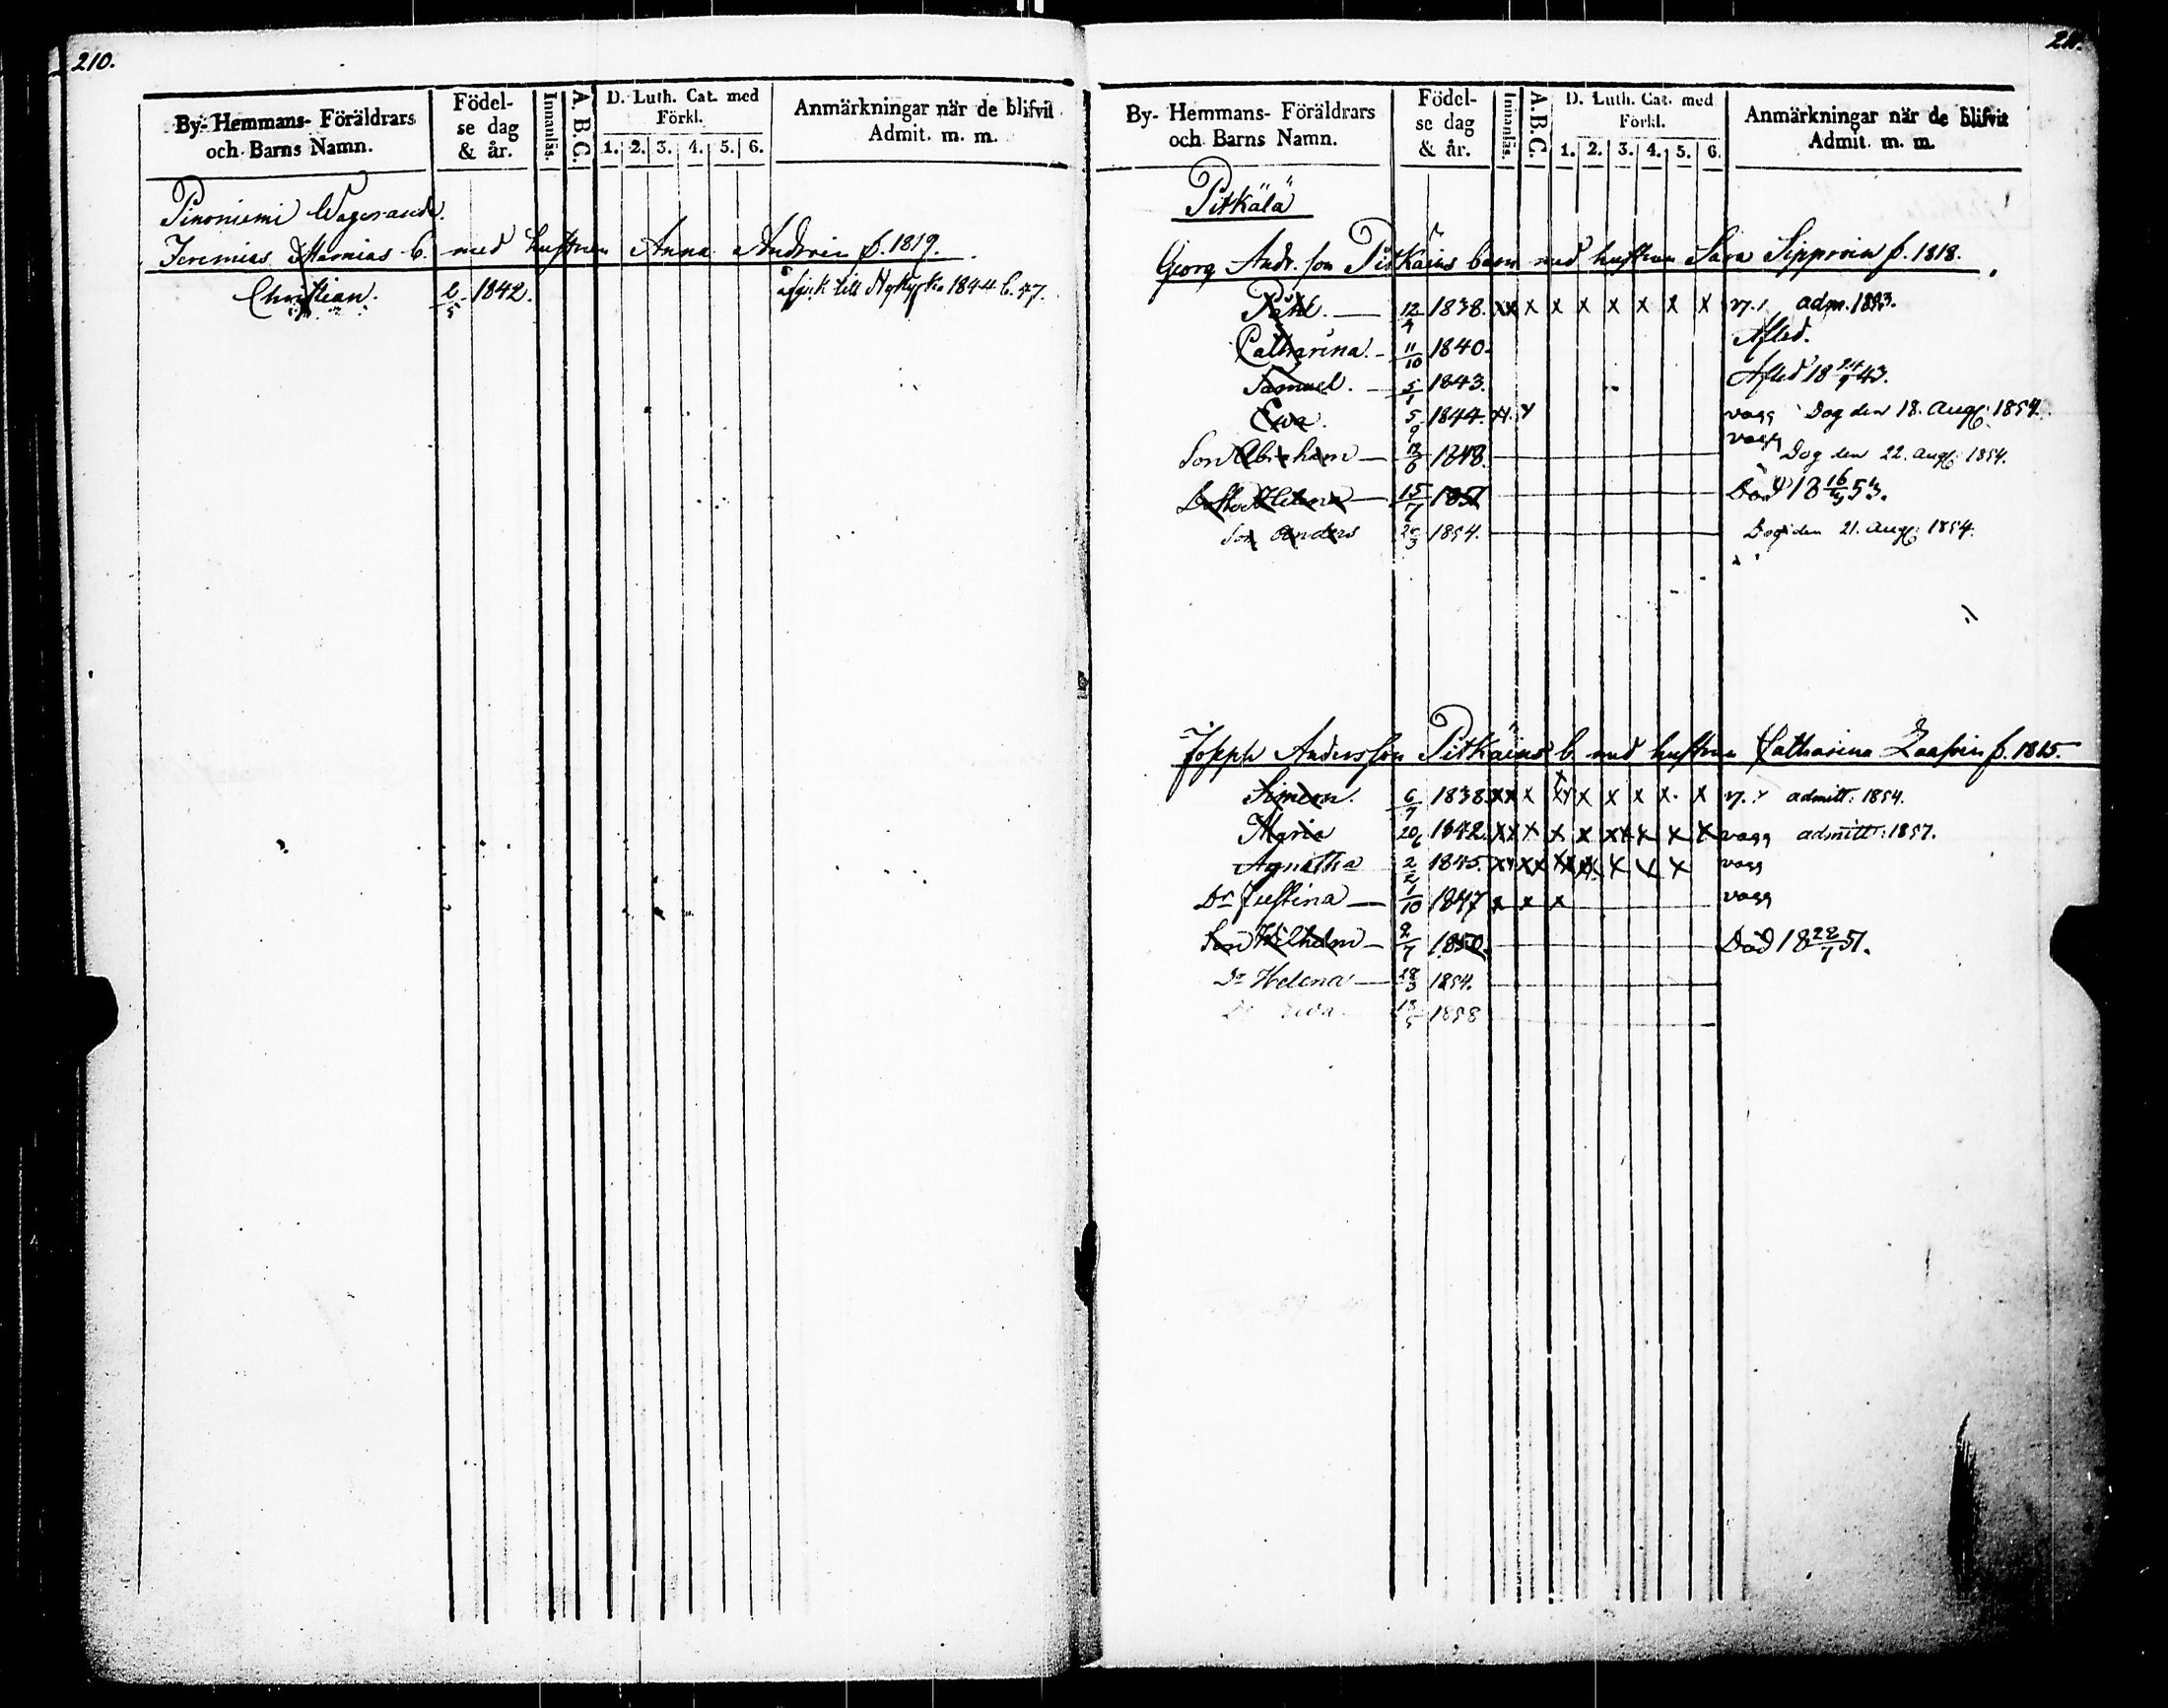 210.
By- Hemmans- Föräldrars och Barns Namn.
Födelse dag & år.
Innanläs.
A.B.C.
D. Luth. Cat. med Förkl.
1. 2. 3. 4. 5. 6.
Anmärkningar när de blifvit Admit. m. m.
Pinoniemi
Jeremias b. med hustrun Anna f. 1819.
Christian. 2/5 1842. afgick till Nykyrka 1844 C. 47.
By- Hemmans- Föräldrars och Barns Namn.
Födelse dag & år.
Innanläs.
A.B.C.
D. Luth. Cat. med Förkl.
1. 2. 3. 4. 5. 6.
Anmärkningar när de blifvit Admit. m. m.
Pitkälä
Georg Andr. son Pitkäins barn med hustrun Sara Sipproin f. 1818.
12/4 1838. xx x x x x x x x adm. 1853.
Catharina. 11/10 1840. Afled.
Samuel. 1843. Afled 18 24/9 43.
Ewa. 5/9 1844. vagg Dog den 18. Aug: 1854.
Son Abraham 1848. vagg Dog den 22. Aug: 1854.
Helena 15/7 1851 Död 18 16/3 53.
Son Anders 1854. Dog den 21. Aug: 1854.
Joseph Andersson Pitkäins b. med hustrun Catharina f. 1815.
Simeon. 1838. xx x x x x x x x admitt: 1854.
Maria 20/6 1842. xx x x x xx x x x vagg admitt: 1857.
Agnetha 2/2 1845. vagg
Dr Justina 1/10 1847 x x x vagg
Son Wilhelm 2/7 1850. Död 18 22/7 51.
Dr Helena 28/3 1854.
Ewa 1858